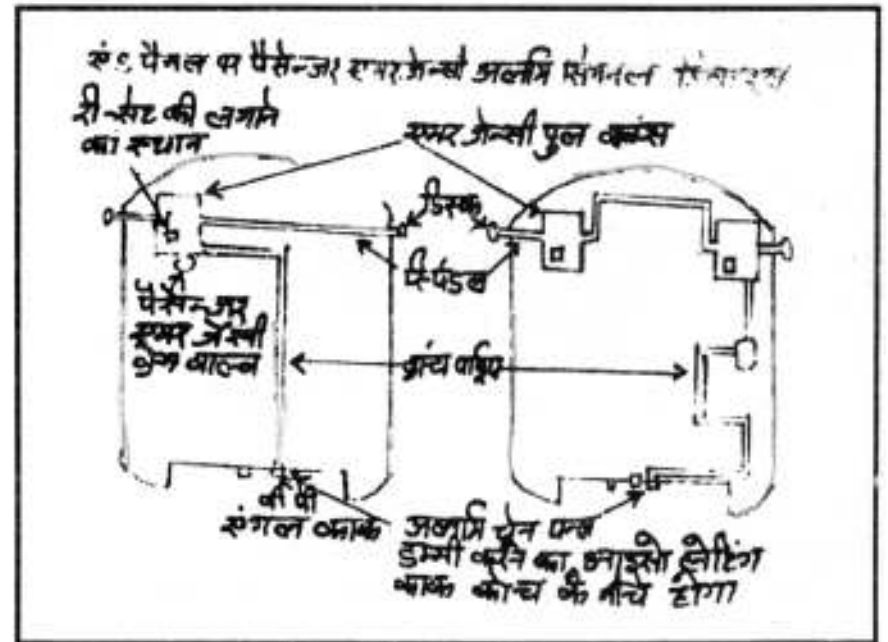 पैनल पर पैसेन्जर एमरजेन्सी अलार्म सिगनल
री-सेट की लगाने
का स्थान
एमरजेन्सी पुल बाक्स
डिस्क
स्पिंडल
पैसेन्जर
एमरजेंसी
ब्रेक वाल्व
ब्रांच पाईप
बी पी
एंगल काक
अलार्म चेन पम्प
डम्मी करने का आइसोलेटिंग
काक कोच के नीचे होगा